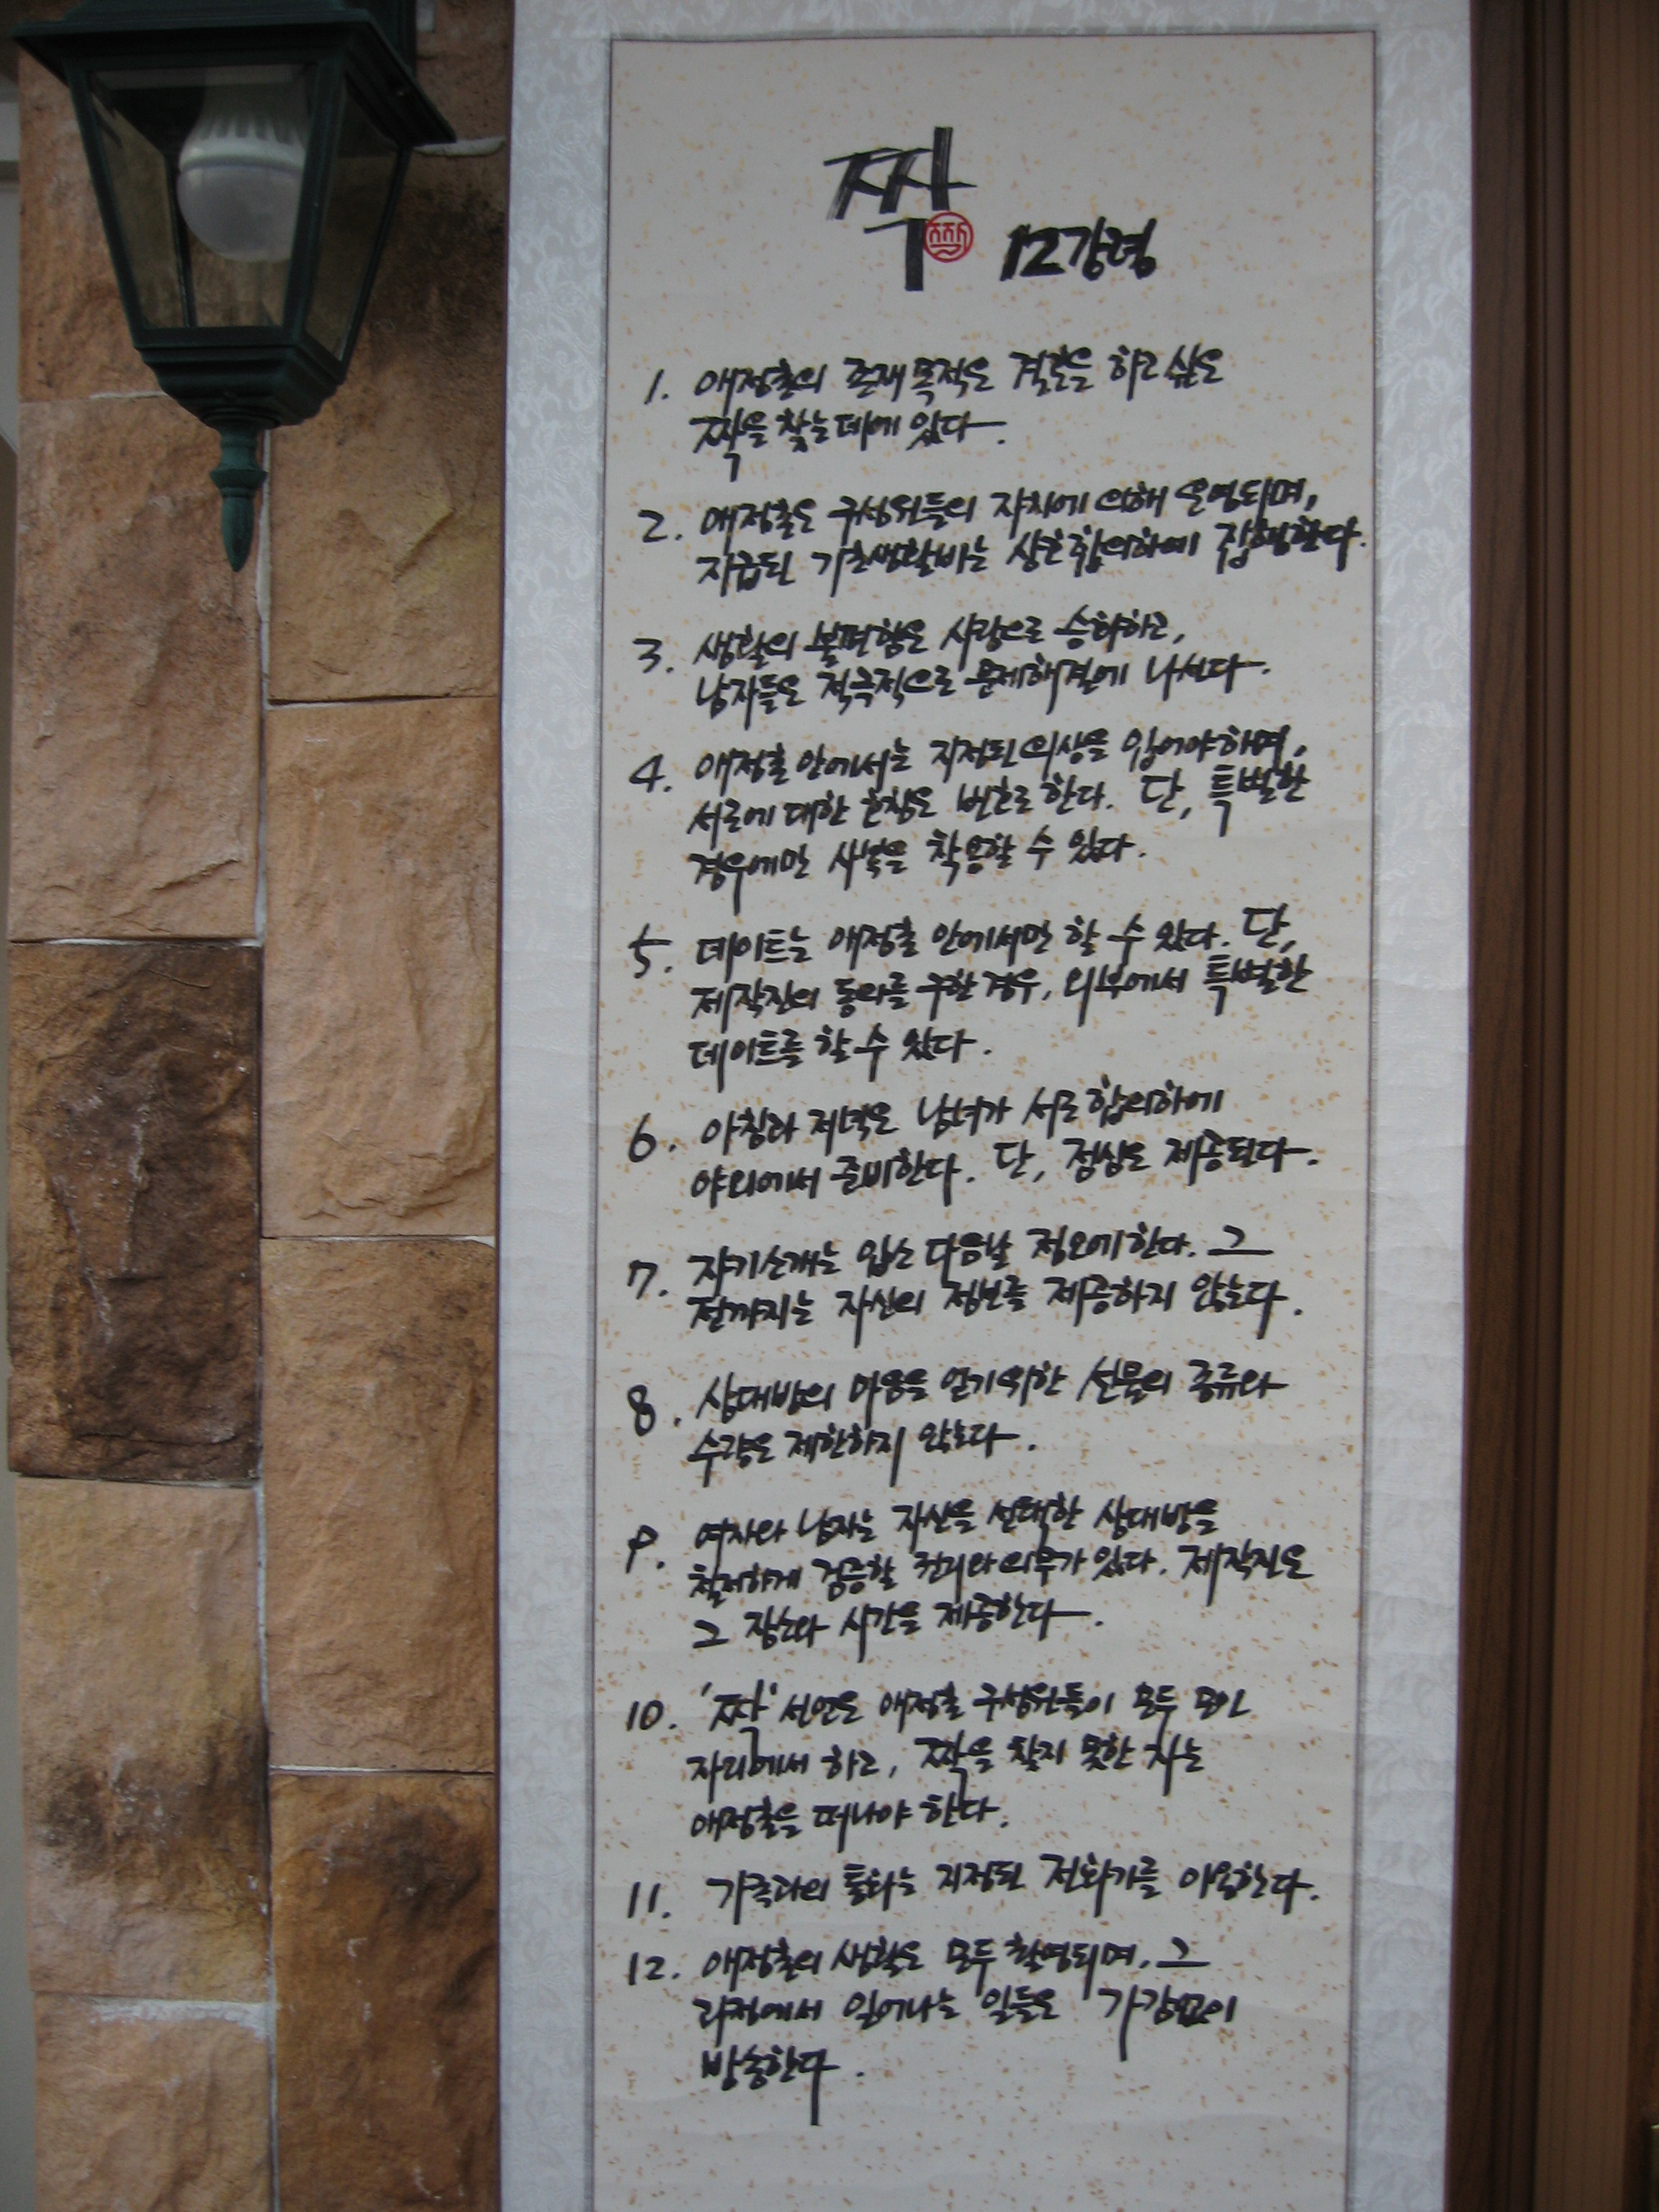 짝
12강령
1. 애정촌의 존재목적은 결혼을 하고 싶은
짝을 찾는데에 있다.
2. 애정촌은 구성원들의 자치에 의해 운영되며,
지급된 기초생활비는 상호합의하에 집행한다.
3. 생활의 불편함은 사랑으로 승화하고,
남자들은 적극적으로 문제해결에 나선다.
4. 애정촌 안에서는 지정된 의상을 입어야하며,
서로에 대한 호칭은 번호로 한다. 단, 특별한
경우에만 사복을 착용할 수 있다.
5. 데이트는 애정촌 안에서만 할 수 있다. 단,
제작진의 동의를 구한 경우, 외부에서 특별한
데이트를 할 수 있다.
6. 아침과 저녁은 남녀가 서로 합의하에
야외에서 준비한다. 단, 점심은 제공된다.
7. 자기소개는 입소 다음날 정오에 한다. 그
전까지는 자신의 정보를 제공하지 않는다.
8. 상대방의 마음을 얻기위한 선물의 종류와
수량은 제한하지 않는다.
9. 여자와 남자는 자신을 선택한 상대방을
철저하게 검증할 권리와 의무가 있다. 제작진은
그 장소와 시간을 제공한다.
10. '짝' 선언은 애정촌 구성원들이 모두 모인
자리에서 하고, 짝을 찾지 못한 자는
애정촌을 떠나야 한다.
11. 가족과의 통화는 지정된 전화기를 이용한다.
12. 애정촌의 생활은 모두 촬영되며, 그
과정에서 일어나는 일들은 가감없이
방송한다.